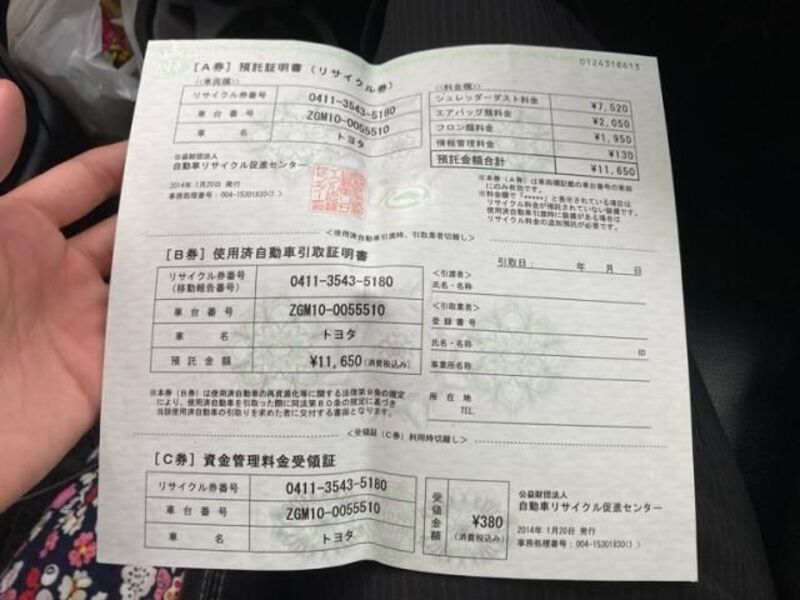 0124318613
[A券] 預託証明書 (リサイクル券)
<車両欄>
リサイクル券番号 0411-3543-5180
車台番号 ZGM10-0055510
車名 トヨタ
公益財団法人
自動車リサイクル促進センター
2014年 1月20日 発行
事務処理番号:004-15301830(1 )
<料金欄>
シュレッダーダスト料金 ¥7,520
エアバッグ類料金 ¥2,050
フロン類料金 ¥1,950
情報管理料金 ¥130
預託金額合計 ¥11,650
※本券(A券)は車両欄記載の車台番号の車両
にのみ有効です。
※料金欄で「*****」と表示されている場合は
リサイクル料金が預託されていない装備です。
使用済自動車引渡時に装備がある場合は
リサイクル料金の追加預託が必要です。
<使用済自動車引渡時、引取業者切離し>
[B券] 使用済自動車引取証明書
リサイクル券番号
(移動報告番号) 0411-3543-5180
車台番号 ZGM10-0055510
車名 トヨタ
預託金額 ¥11,650(消費税込み)
※本券(B券)は使用済自動車の再資源化等に関する法律第9条の規定
により、使用済自動車を引取った際に同法第80条の規定に基づき
当該使用済自動車の引取りを求めた者に交付する書面となります。
引取日: 年 月 日
<引渡者>
氏名・名称
<引取業者>
登録番号
氏名・名称 印
事業所名称
所在地
TEL.
<受領証(C券)利用時切離し>
[C券] 資金管理料金受領証
リサイクル券番号 0411-3543-5180
車台番号 ZGM10-0055510
車名 トヨタ
受領金額 ¥380
(消費税込み)
公益財団法人
自動車リサイクル促進センター
2014年 1月20日 発行
事務処理番号:004-15301830(1 )